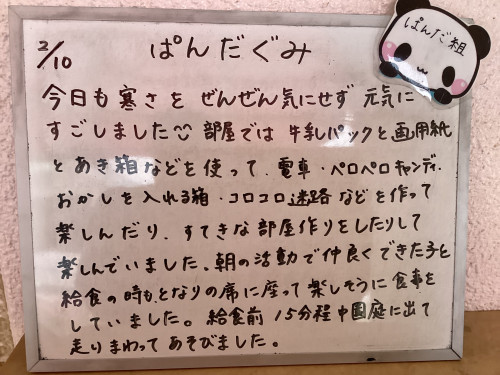 2/10
ぱんだぐみ
ぱんだ組
今日も寒さを ぜんぜん気にせず 元気に
すごしました 部屋では 牛乳パックと画用紙
とあき箱などを使って、電車・ペロペロキャンディ・
おかしを入れる箱・コロコロ迷路などを作って
楽しんだり、すてきな部屋作りをしたりして
楽しんでいました。朝の活動で仲良くできた子と
給食の時も、となりの席に座って楽しそうに食事を
していました。給食前 15分程中園庭に出て
走りまわってあそびました。